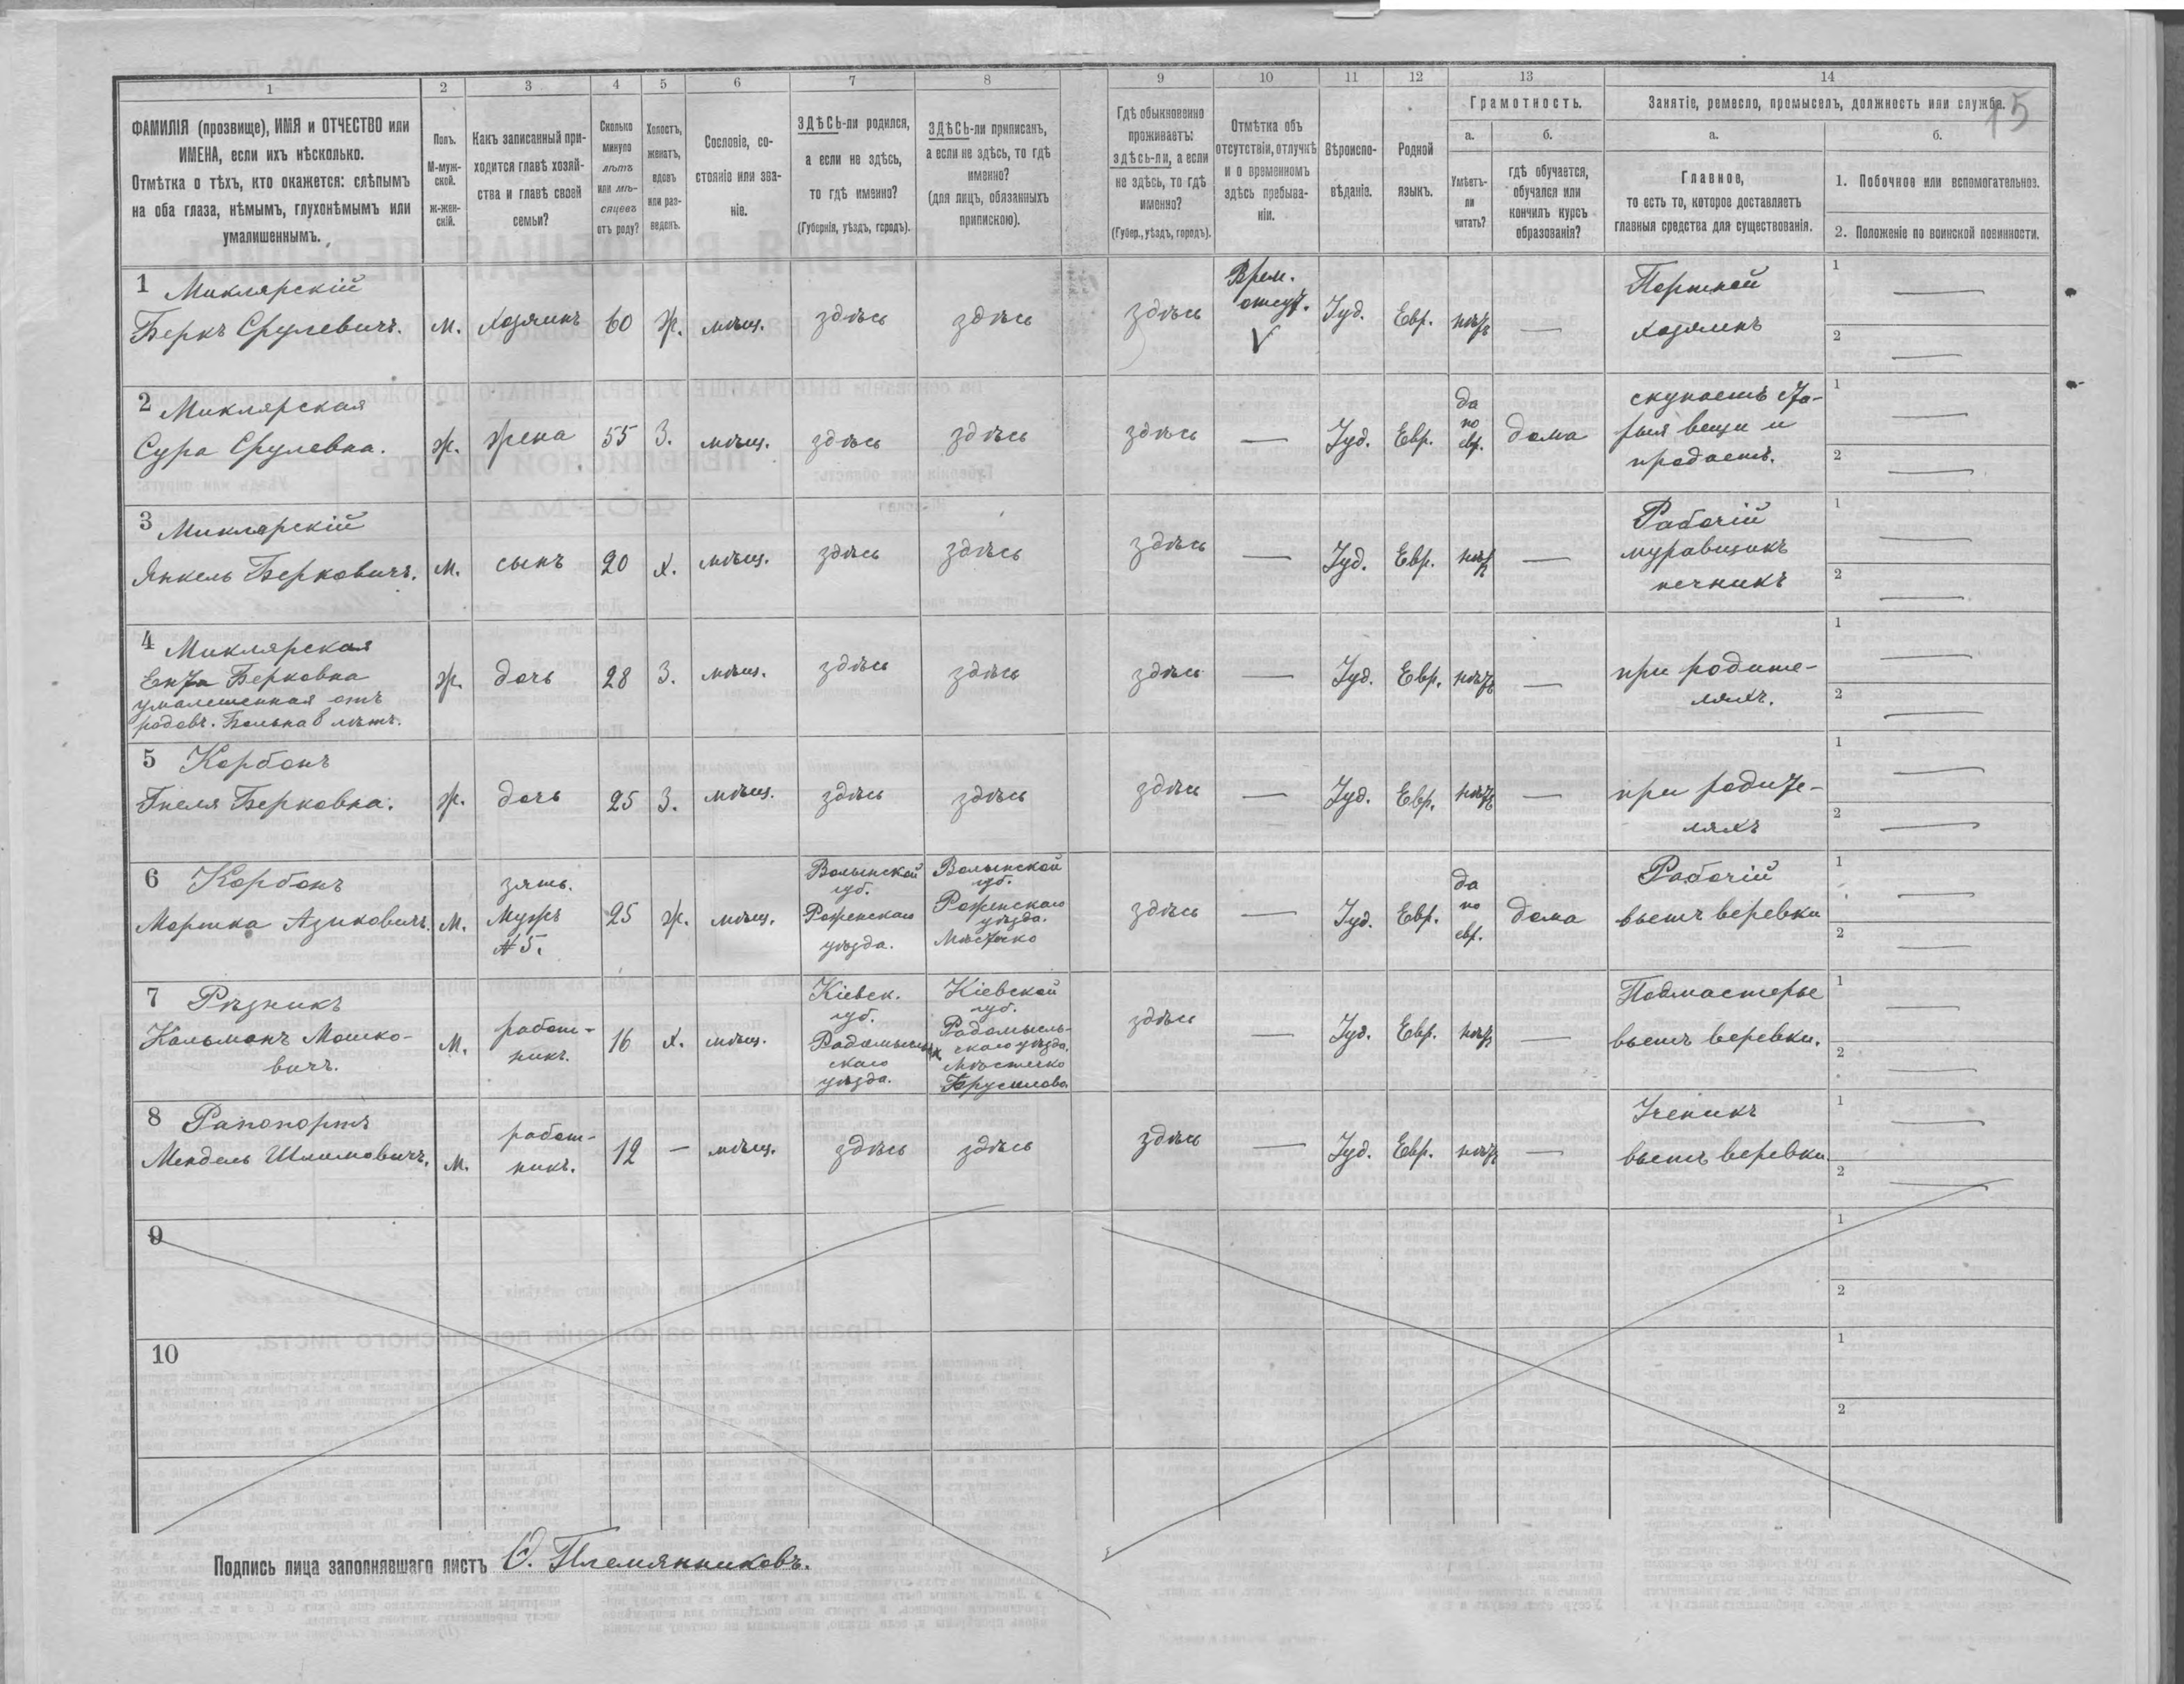 15
1 2 3 4 5 6 7 8 9 10 11 12 13 14
ФАМИЛІЯ (прозвище), ИМЯ и ОТЧЕСТВО или
ИМЕНА, если ихъ нѣсколько.
Отмѣтка о тѣхъ, кто окажется: слѣпымъ
на оба глаза, нѣмымъ, глухонѣмымъ или
умалишеннымъ.
Полъ.
М-муж-
ской.
Ж-жен-
скій.
Какъ записанный при-
ходится главѣ хозяй-
ства и главѣ своей
семьи?
Сколько
минуло
лѣтъ
или мѣ-
сяцевъ
отъ роду?
Холостъ,
женатъ,
вдовъ
или раз-
веденъ.
Сословіе, со-
стояніе или зва-
ніе.
ЗДѢСЬ-ли родился,
а если не здѣсь,
то гдѣ именно?
(Губернія, уѣздъ, городъ).
ЗДѢСЬ-ли приписанъ,
а если не здѣсь, то гдѣ
именно?
(для лицъ, обязанныхъ
припискою).
Гдѣ обыкновенно
проживаетъ:
здѣсь-ли, а если
не здѣсь, то гдѣ
именно?
(Губер., уѣздъ, городъ).
Отмѣтка объ
отсутствіи, отлучкѣ
и о временномъ
здѣсь пребыва-
ніи.
Вѣроиспо-
вѣданіе.
Родной
языкъ.
Грамотность.
а.
Умѣетъ-
ли
читать?
б.
гдѣ обучается,
обучался или
кончилъ курсъ
образованія?
Занятіе, ремесло, промыселъ, должность или служба.
а.
Главное,
то есть то, которое доставляетъ
главныя средства для существованія.
б.
1. Побочное или вспомогательное.
2. Положеніе по воинской повинности.
1 Миклярскій
Беркъ Срулевичъ.
м. хозяинъ 60 ж. мѣщ. здѣсь здѣсь здѣсь
Врем.
отсут.
V
Іуд. Евр. нѣтъ —
Портной
хозяинъ
1 —
2 —
2 Миклярская
Сура Срулевна.
ж. жена 55 З. мѣщ. здѣсь здѣсь здѣсь — Іуд. Евр.
да
по
евр.
дома
скупаетъ ста-
рыя вещи и
продаетъ.
1 —
2 —
3 Миклярскій
Янкель Берковичъ.
м. сынъ 20 х. мѣщ. здѣсь здѣсь здѣсь — Іуд. Евр. нѣтъ —
Рабочій
муравщикъ
печникъ
1 —
2 —
4 Миклярская
Ента Берковна
умалишенная отъ
родовъ. Больна 8 лѣтъ.
ж. дочь 28 З. мѣщ. здѣсь здѣсь здѣсь — Іуд. Евр. нѣтъ —
при родите-
ляхъ.
1 —
2 —
5 Корбонъ
Гнеля Берковна.
ж. дочь 25 З. мѣщ. здѣсь здѣсь здѣсь — Іуд. Евр. нѣтъ —
при родите-
ляхъ
1 —
2 —
6 Корбонъ
Мортка Азиковичъ.
м.
зять.
Мужъ
№ 5.
25 ж. мѣщ.
Волынской
губ.
Ровенскаго
уѣзда.
Волынской
губ.
Ровенскаго
уѣзда.
Мѣстечко
здѣсь — Іуд. Евр.
да
по
евр.
дома
Рабочій
вьетъ веревки
1 —
2 —
7 Рѣзникъ
Кальманъ Мошко-
вичъ.
м.
работ-
никъ.
16 х. мѣщ.
Кіевск.
губ.
Радомысль-
скаго
уѣзда.
Кіевской
губ.
Радомысль-
скаго уѣзда.
Мѣстечко
Брусилово
здѣсь — Іуд. Евр. нѣтъ —
Подмастерье
вьетъ веревки.
1 —
2 —
8 Рапопортъ
Мендель Шлимовичъ.
м.
работ-
никъ.
12 — мѣщ. здѣсь здѣсь здѣсь — Іуд. Евр. нѣтъ —
Ученикъ
вьетъ веревки
1 —
2 —
9
1
2
10
1
2
Подпись лица заполнявшаго листъ О. Племянниковъ.